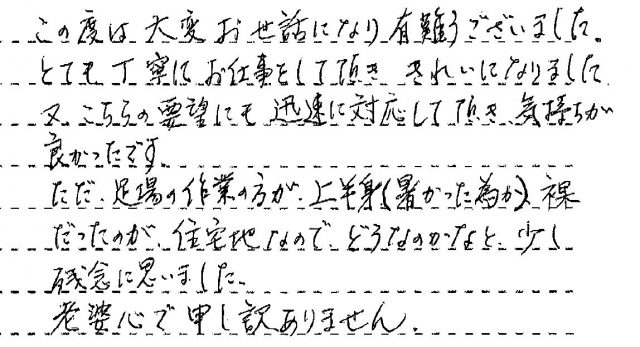 この度は大変お世話になり有難うございました。
とても丁寧にお仕事をして頂き きれいになりました
又、こちらの要望にも迅速に対応して頂き、気持ちが
良かったです。
ただ、足場の作業の方が、上半身(暑かった為か)、裸
だったのが、住宅地なので、どうなのかなと、少し
残念に思いました。
老婆心で申し訳ありません。